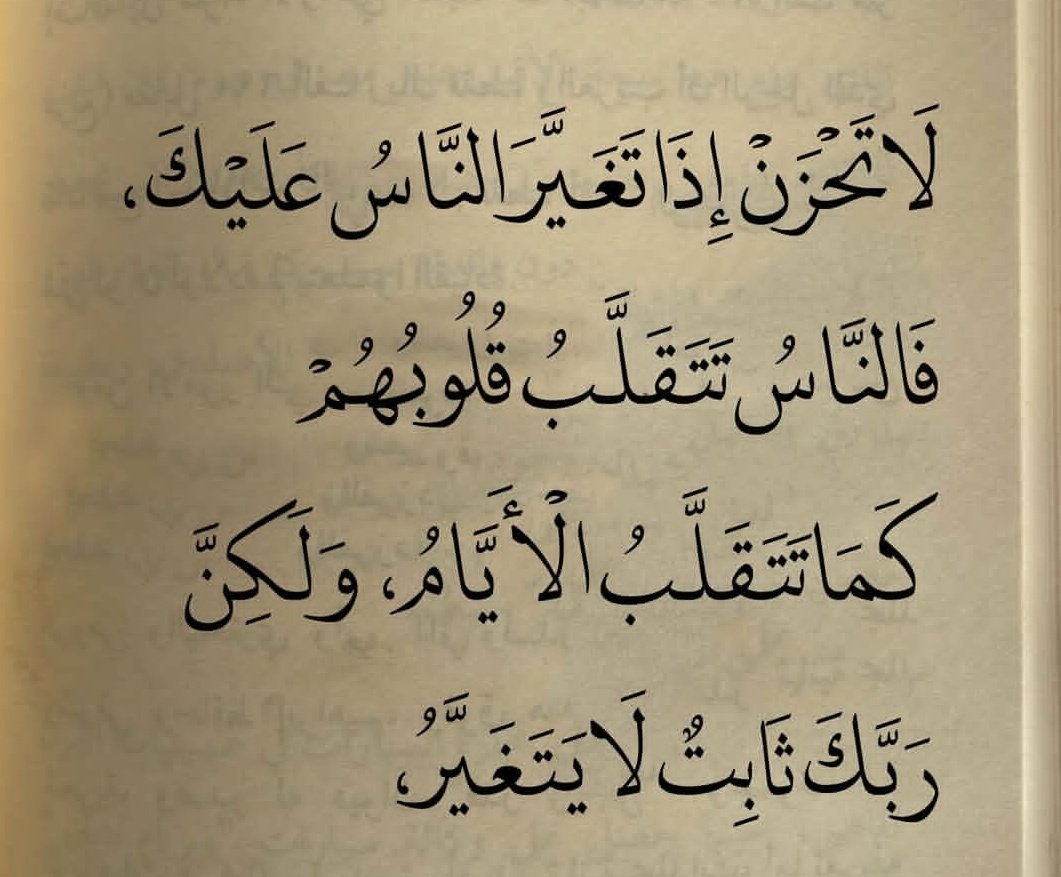 لَا تَحْزَنْ إِذَا تَغَيَّرَ النَّاسُ عَلَيْكَ،
فَالنَّاسُ تَتَقَلَّبُ قُلُوبُهُمْ
كَمَا تَتَقَلَّبُ الْأَيَّامُ، وَلَكِنَّ
رَبَّكَ ثَابِتٌ لَا يَتَغَيَّرُ،